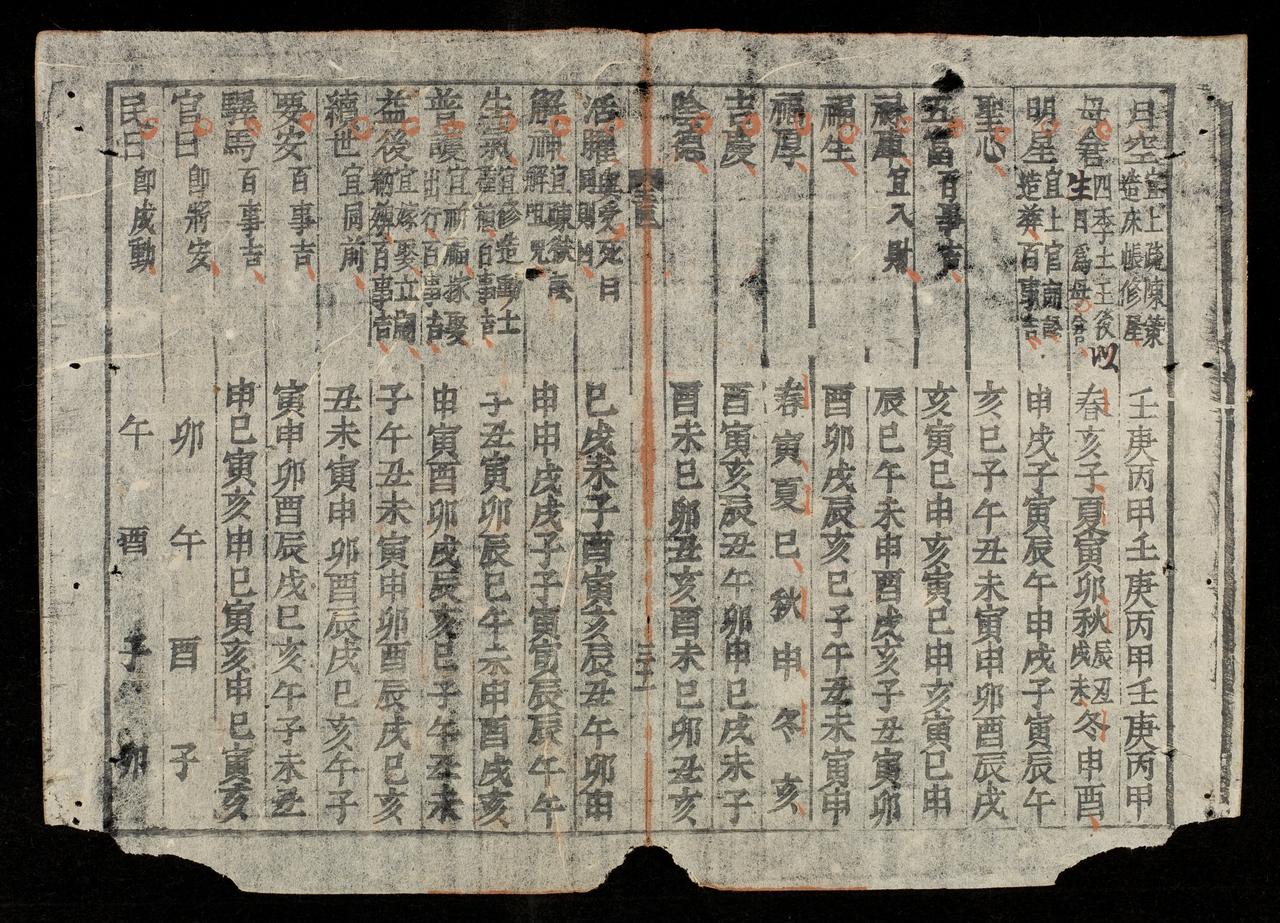 月空 宜上疏陳策 造床帳修產 壬庚丙甲壬庚丙甲壬庚丙甲
母倉 四季土王後以 生日爲母倉 春亥子夏寅卯秋辰丑戌未冬申酉
明星 宜上官 造葬百事吉 申戌子寅辰午申戌子寅辰午
聖心 亥巳子午丑未寅申卯酉辰戌
五富 百事吉 亥寅巳申亥寅巳申亥寅巳申
祿庫 宜入財 辰巳午未申酉戌亥子丑寅卯
福生 酉卯戌辰亥巳子午丑未寅申
福厚 春寅夏巳秋申冬亥
吉慶 酉寅亥辰丑午卯申巳戌未子
陰德 酉未巳卯丑亥酉未巳卯丑亥
三十二
活曜 與受死日 同則凶 巳戌未子酉寅亥辰丑午卯申
解神 宜陳 解咀咒 申申戌戌子子寅寅辰辰午午
生氣 宜修造動土 百事吉 子丑寅卯辰巳午未申酉戌亥
普護 宜祈福嫁娶 出行百事吉 申寅酉卯戌辰亥巳子午丑未
益後 宜嫁娶立嗣 百事吉 子午丑未寅申卯酉辰戌巳亥
續世 宜同前 丑未寅申卯酉辰戌巳亥午子
要安 百事吉 寅申卯酉辰戌巳亥午子未丑
驛馬 百事吉 申巳寅亥申巳寅亥申巳寅亥
官日 卽將安 卯午酉子
民日 卽成勳 午酉子卯